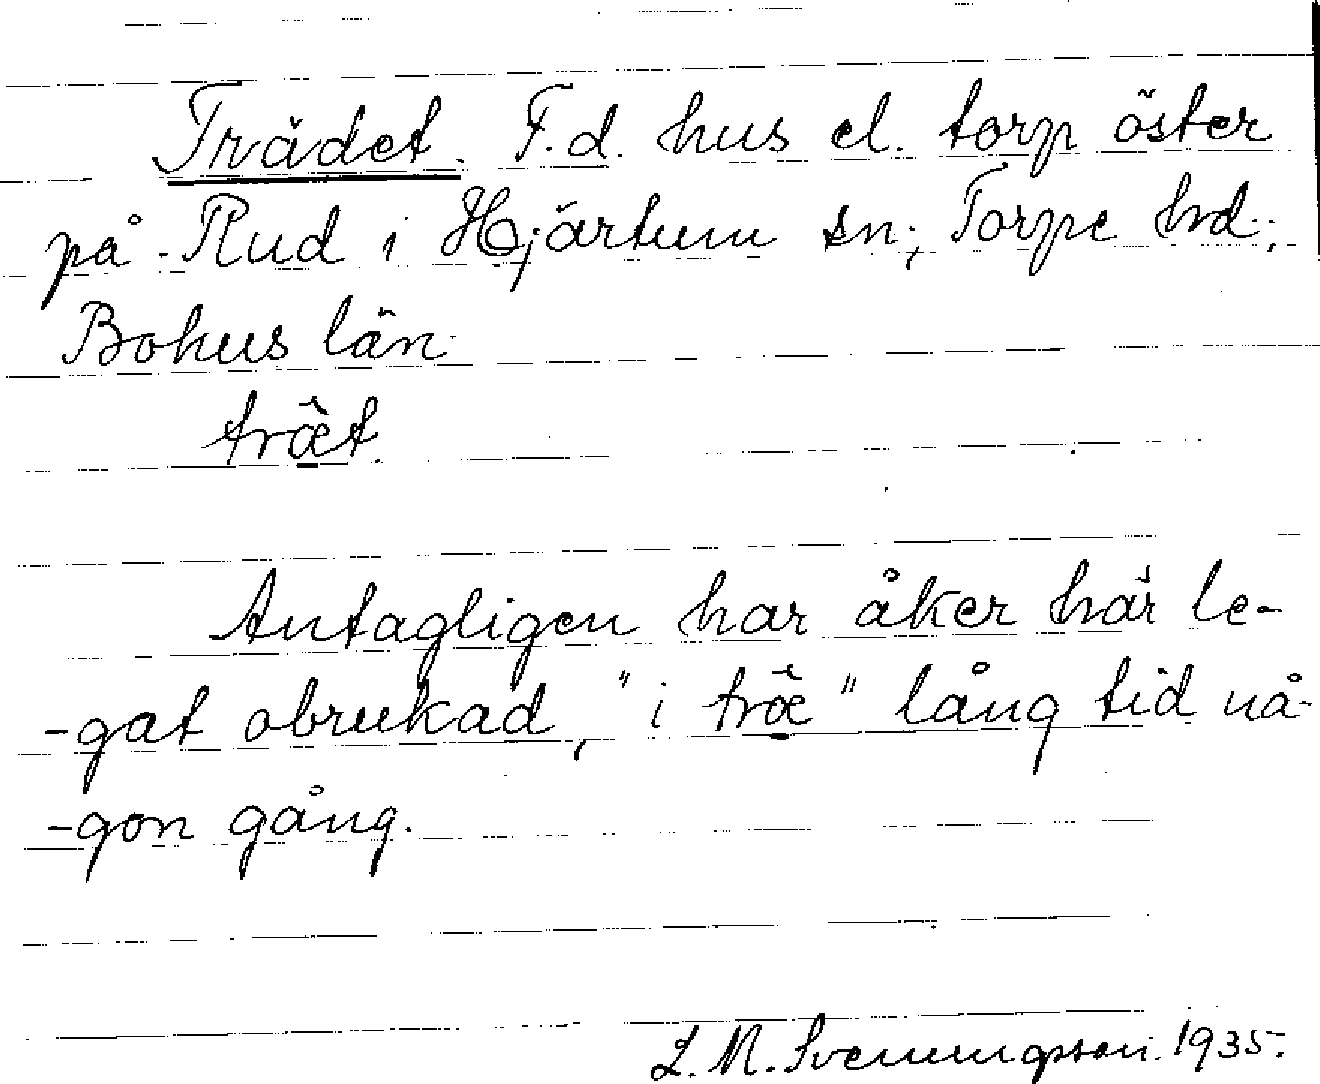 Trädet. F.d. hus el. torp öster
på Rud i Hjärtum sn; Torpe hd;
Bohus län
trœ̂t.
Antagligen har åker här le-
-gat obrukad, "i trœ̂" lång tid nå-
-gon gång.
L. M. Svenungsson. 1935.